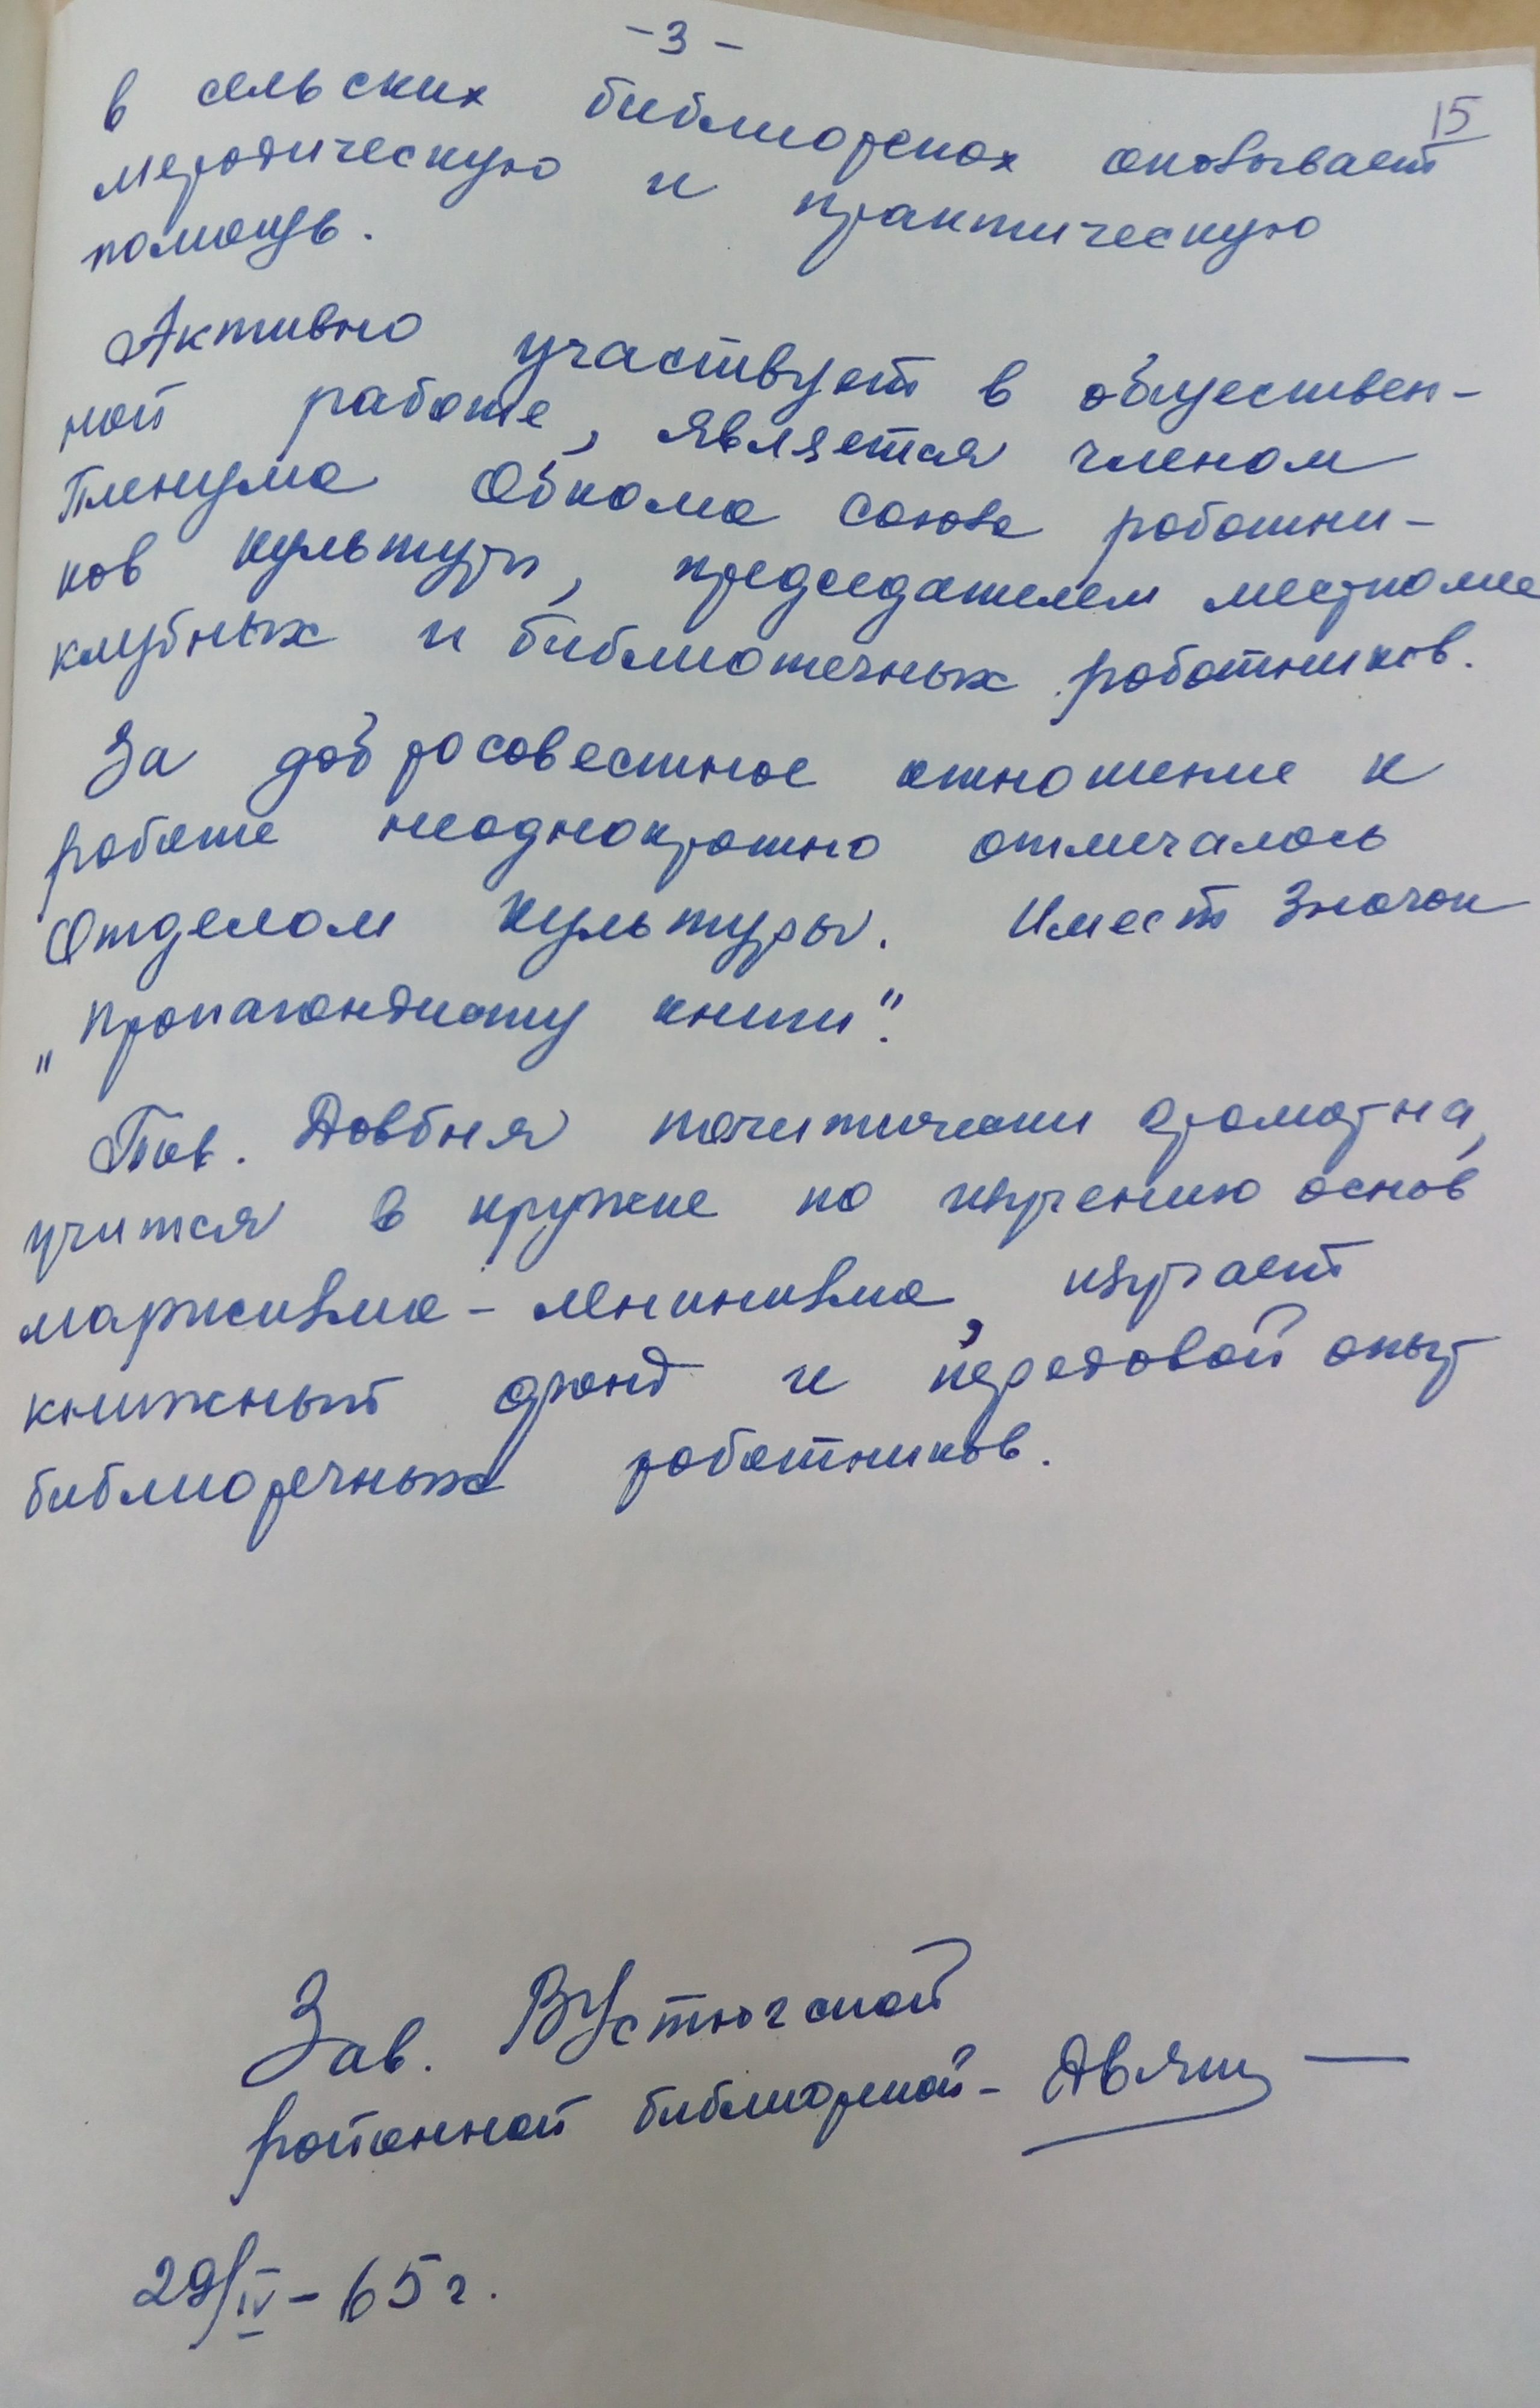 - 3 -
15
в сельских библиотеках оказывает
методическую и практическую
помощь.
Активно участвует в обществен-
ной работе, является членом
Пленума Обкома союза работни-
ков культуры, председателем месткома
клубных и библиотечных работников.
За добросовестное отношение к
работе неоднократно отмечалась
Отделом культуры. Имеет Значок
„Пропагандисту книги".
Тов. Довбня политически грамотна,
учится в кружке по изучению основ
марксизма-ленинизма, изучает
книжный фонд и передовой опыт
библиотечных работников.
Зав. ВУстюгской
районной библиотекой -
29/IV - 65 г.